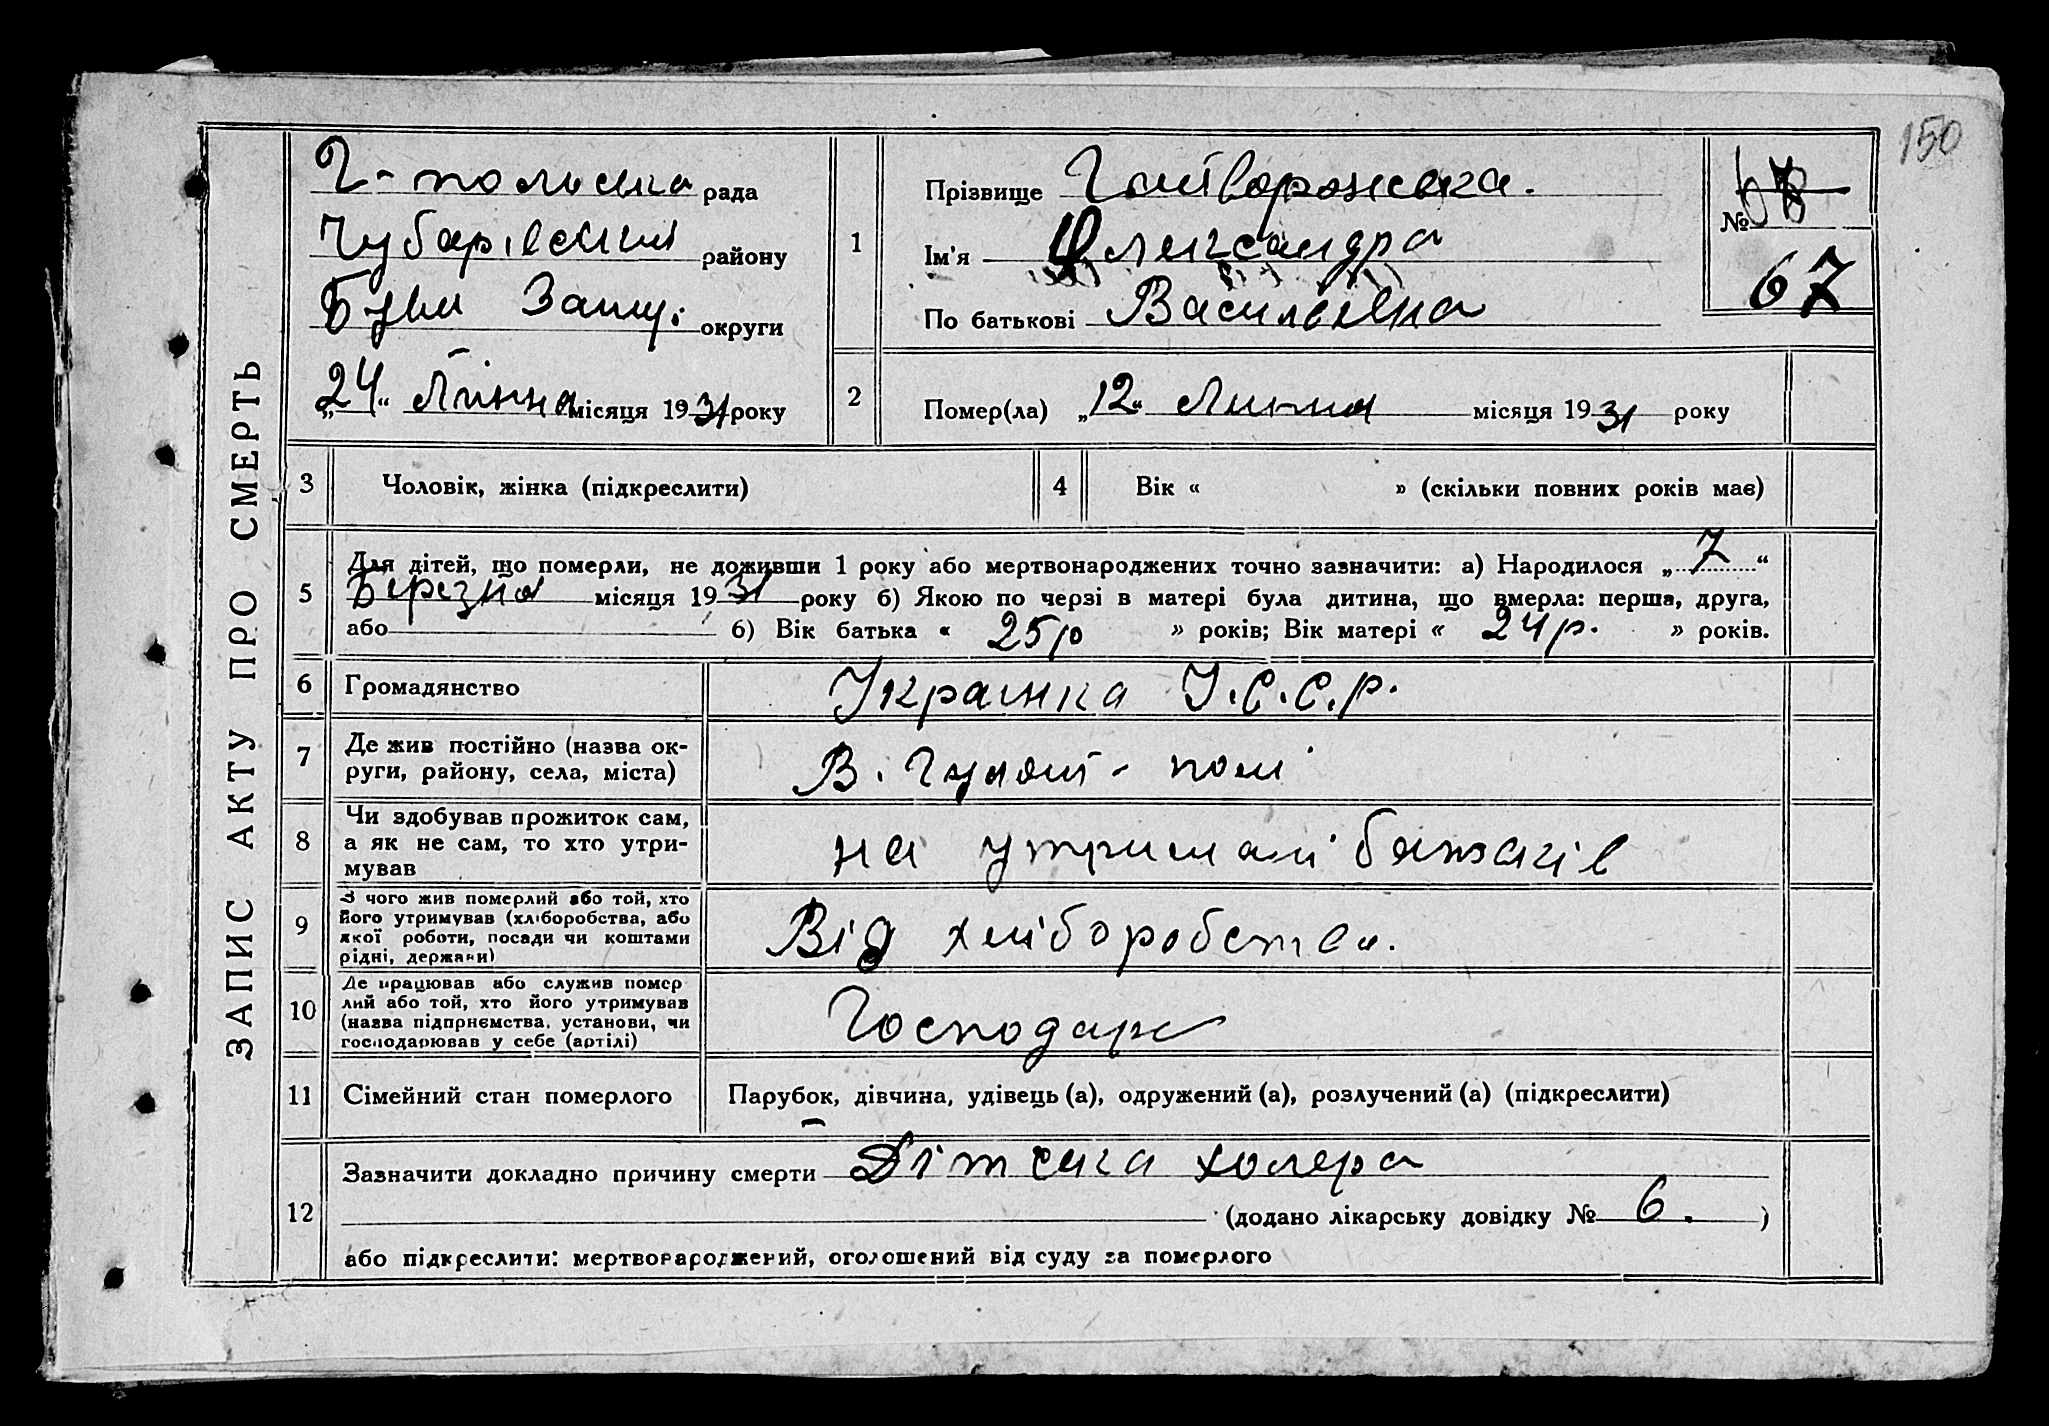 150
ЗАПИС АКТУ ПРО СМЕРТЬ
Г-польська рада
Чубарівський району
округи
„24“ Липня місяця 1931 року
1
Прізвище Гайворонська.
Ім'я Олександра
По батькові Васильевна
№
67
2
Помер(ла) „12“ Липня місяця 1931 року
3 Чоловік, жінка (підкреслити)
4 Вік « » (скільки повних років має)
5
Для дітей, що померли, не доживши 1 року або мертвонароджених точно зазначити: а) Народилося „7“
Березня місяця 1931 року б) Якою по черзі в матері була дитина, що вмерла: перша, друга,
або б) Вік батька « 25 р » років; Вік матері « 24 р. » років.
6 Громадянство Украинка У.С.С.Р.
7 Де жив постійно (назва ок-
руги, району, села, міста) В. Гуляй-полі
8 Чи здобував прожиток сам,
а як не сам, то хто утри-
мував на утримані батьків
9 З чого жив померлий або той, хто
його утримував (хліборобства, або
якої роботи, посади чи коштами
рідні, держави) Від хліборобства.
10 Де працював або служив помер
лий або той, хто його утримував
(назва підприємства, установи, чи
господарював у себе (артілі) Господарь
11 Сімейний стан померлого Парубок, дівчина, удівець (а), одружений (а), розлучений (а) (підкреслити)
12
Зазначити докладно причину смерти Дітська холера
(додано лікарську довідку № 6. )
або підкреслити: мертвонароджений, оголошений від суду за померлого